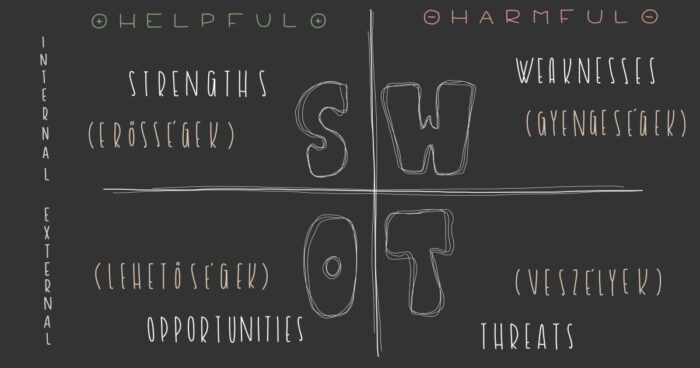 HELPFUL
HARMFUL
INTERNAL
STRENGTHS
(ERŐSSÉGEK)
S
W
WEAKNESSES
(GYENGESÉGEK)
EXTERNAL
(LEHETŐSÉGEK)
OPPORTUNITIES
O
T
(VESZÉLYEK)
THREATS